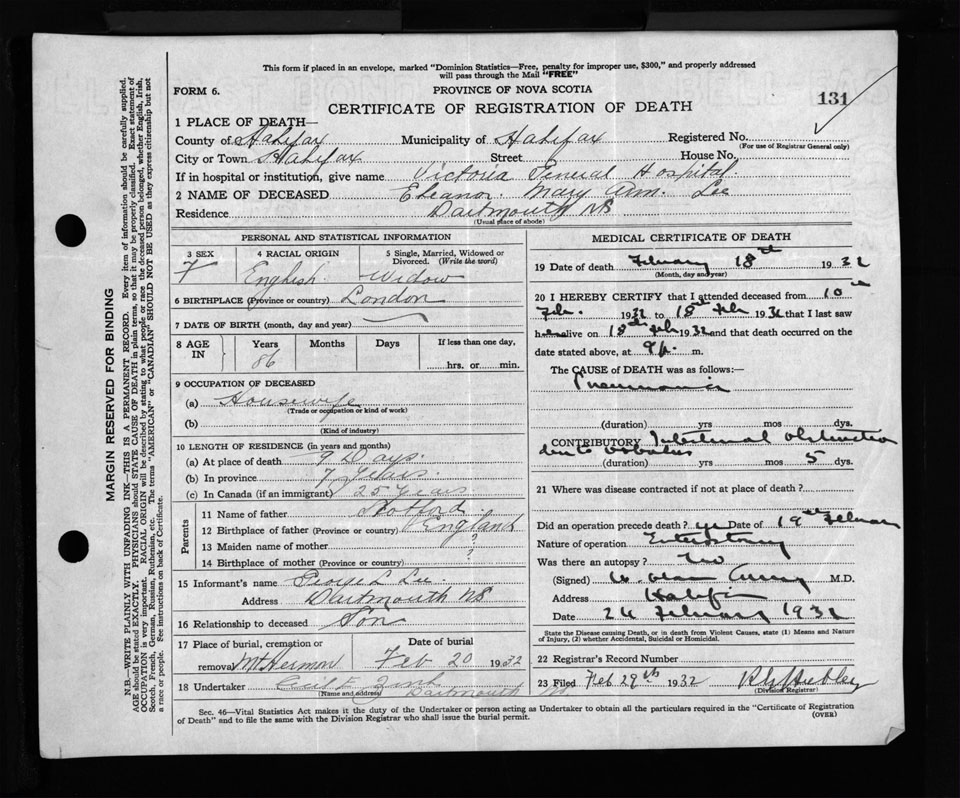 This form if placed in an envelope, marked "Dominion Statistics—Free, penalty for improper use, $300," and properly addressed
will pass through the Mail "FREE"
FORM 6.
PROVINCE OF NOVA SCOTIA
131
CERTIFICATE OF REGISTRATION OF DEATH
1 PLACE OF DEATH—
County of Halifax Municipality of Halifax Registered No.
(For use of Registrar General only)
City or Town Halifax Street House No.
If in hospital or institution, give name Victoria General Hospital.
2 NAME OF DECEASED Eleanor Mary Ann. Lee
Residence Dartmouth NS
(Usual place of abode)
PERSONAL AND STATISTICAL INFORMATION
3 SEX 4 RACIAL ORIGIN 5 Single, Married, Widowed or
Divorced. (Write the word)
F English Widow
6 BIRTHPLACE (Province or country) London
7 DATE OF BIRTH (month, day and year)
8 AGE IN Years Months Days If less than one day,
86 hrs. or min.
9 OCCUPATION OF DECEASED
(a) Housewife
(Trade or occupation or kind of work)
(b)
(Kind of industry)
10 LENGTH OF RESIDENCE (in years and months)
(a) At place of death 9 Days.
(b) In province 7 Years.
(c) In Canada (if an immigrant) 25 Years
Parents
11 Name of father
12 Birthplace of father (Province or country) England
13 Maiden name of mother ?
14 Birthplace of mother (Province or country) ?
15 Informant's name George L Lee.
Address Dartmouth NS
16 Relationship to deceased Son
17 Place of burial, cremation or Date of burial
removal Mt. Hermon Feb 20 1932
18 Undertaker Cecil E. Zink
(Name and address) Dartmouth NS
MEDICAL CERTIFICATE OF DEATH
19 Date of death February 18th 1932
(Month, day and year)
20 I HEREBY CERTIFY that I attended deceased from 10th
Feb. 1932 to 18th Feb 1932 that I last saw
her alive on 18th Feb 1932 and that death occurred on the
date stated above, at 9 p. m.
The CAUSE of DEATH was as follows:—
Pneumonia
(duration) yrs mos dys.
CONTRIBUTORY Intestinal Obstruction
due to Volvulus
(duration) yrs mos 5 dys.
21 Where was disease contracted if not at place of death?
Did an operation precede death? yes Date of 19th February
Nature of operation Enterostomy
Was there an autopsy? No
(Signed) M.D.
Address Halifax
Date 24 February 1932
State the Disease causing Death, or in death from Violent Causes, state (1) Means and Nature
of Injury, (2) whether Accidental, Suicidal or Homicidal.
22 Registrar's Record Number
23 Filed Feb 29th 1932
(Division Registrar)
Sec. 46—Vital Statistics Act makes it the duty of the Undertaker or person acting as Undertaker to obtain all the particulars required in the "Certificate of Registration
of Death" and to file the same with the Division Registrar who shall issue the burial permit.
(OVER)
MARGIN RESERVED FOR BINDING
N.B.—WRITE PLAINLY WITH UNFADING INK—THIS IS A PERMANENT RECORD. Every item of information should be carefully supplied.
AGE should be stated EXACTLY. PHYSICIANS should STATE CAUSE OF DEATH in plain terms, so that it may be properly classified. Exact statement of
OCCUPATION is very important. RACIAL ORIGIN will be described by stating to what people or race the deceased person belonged, whether English, Irish,
Scotch, French, German, Russian, Ruthenian, etc. The terms "AMERICAN" or "CANADIAN" SHOULD NOT BE USED as they express citizenship but not
a race or people. See instructions on back of Certificate.